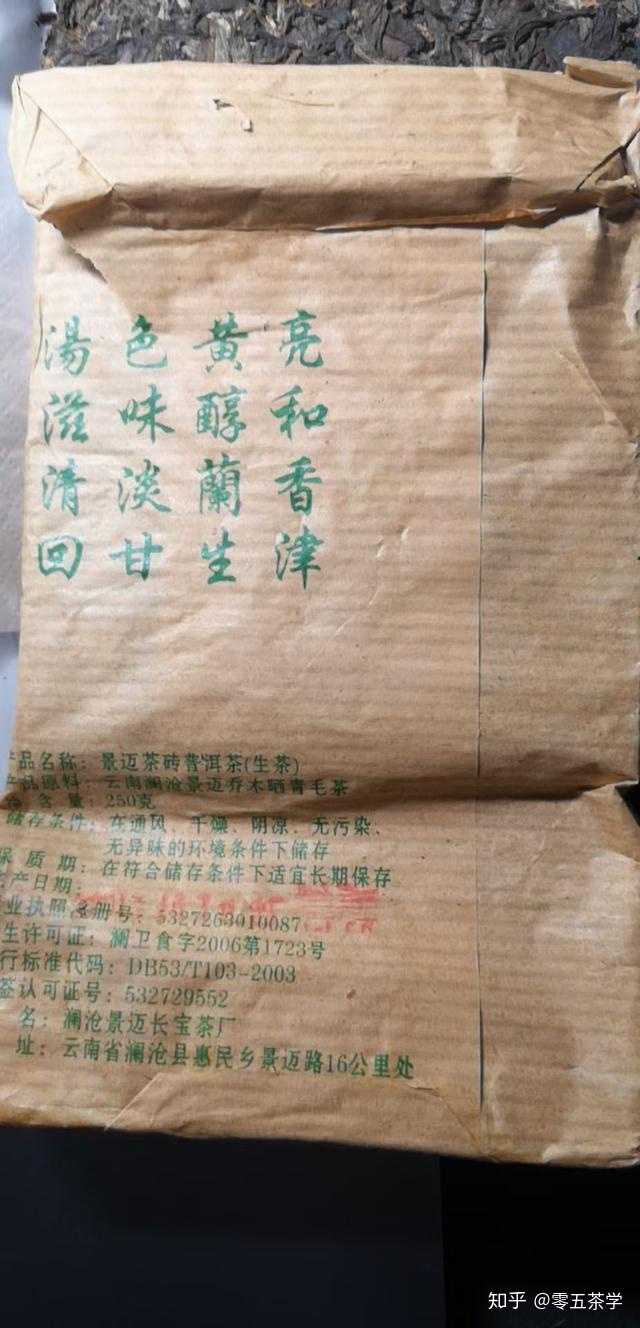 湯色黃亮
滋味醇和
清淡蘭香
回甘生津
产品名称：景迈茶砖普洱茶(生茶)
产品原料：云南澜沧景迈乔木晒青毛茶
含量：250克
储存条件：在通风、干燥、阴凉、无污染、
无异味的环境条件下储存
保质期：在符合储存条件下适宜长期保存
生产日期：
业执照注册号：5327263010087
生许可证：澜卫食字2006第1723号
行标准代码：DB53/T103-2003
签认可证号：532729552
名：澜沧景迈长宝茶厂
址：云南省澜沧县惠民乡景迈路16公里处
知乎 @零五茶学